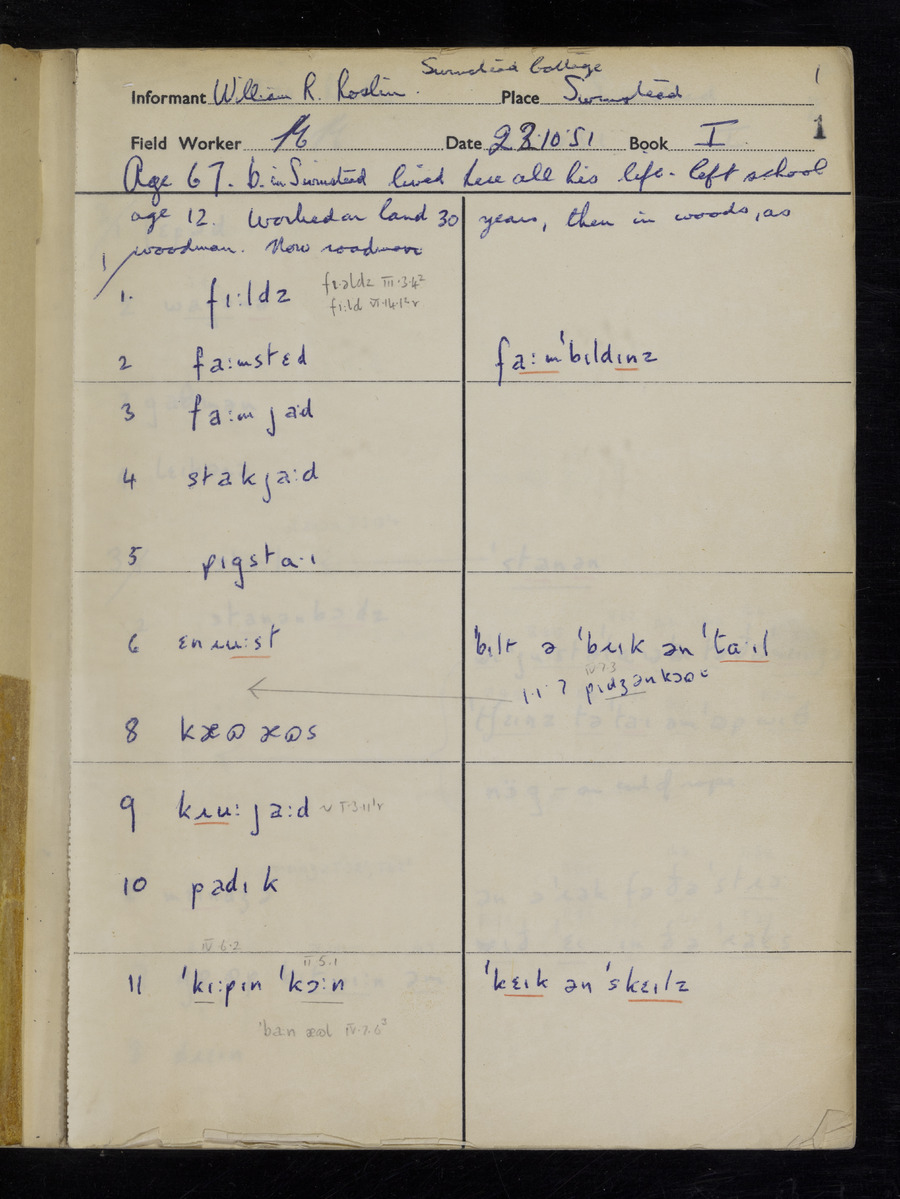 Swinstead Cottage 1
Informant William R. Roslin. Place Swinstead
Field Worker Date 23·10·51 Book I. 1
Age 67. b. in Swinstead lived here all his life. left school
age 12. Worked on land 30 years, then in woods, as
woodman. Now roadman
1. fɪːldz frəldz III·3·4² 
fiːld VI·14·1²r
2 faːmstɛd faːmˈbɪldɪnz
3 faːmjaːd
4 stakjaːd
5 pɪgstaˑɪ
6 ɛnɪuːst ˈbɪlt ə ˈbrɪk ən ˈtaːɪl
IV·7·3
1·1·7 pɪdʒən
8 kæʊ æʊs
9 kɪuː jaːd v I·3·11¹r
10 padɪk
IV·6·2 II·5·1
11 ˈkɪːpɪn ˈkɔːn ˈkɛɪk ən ˈskɛɪlz
ˈbaːn æʊl IV·7·6³